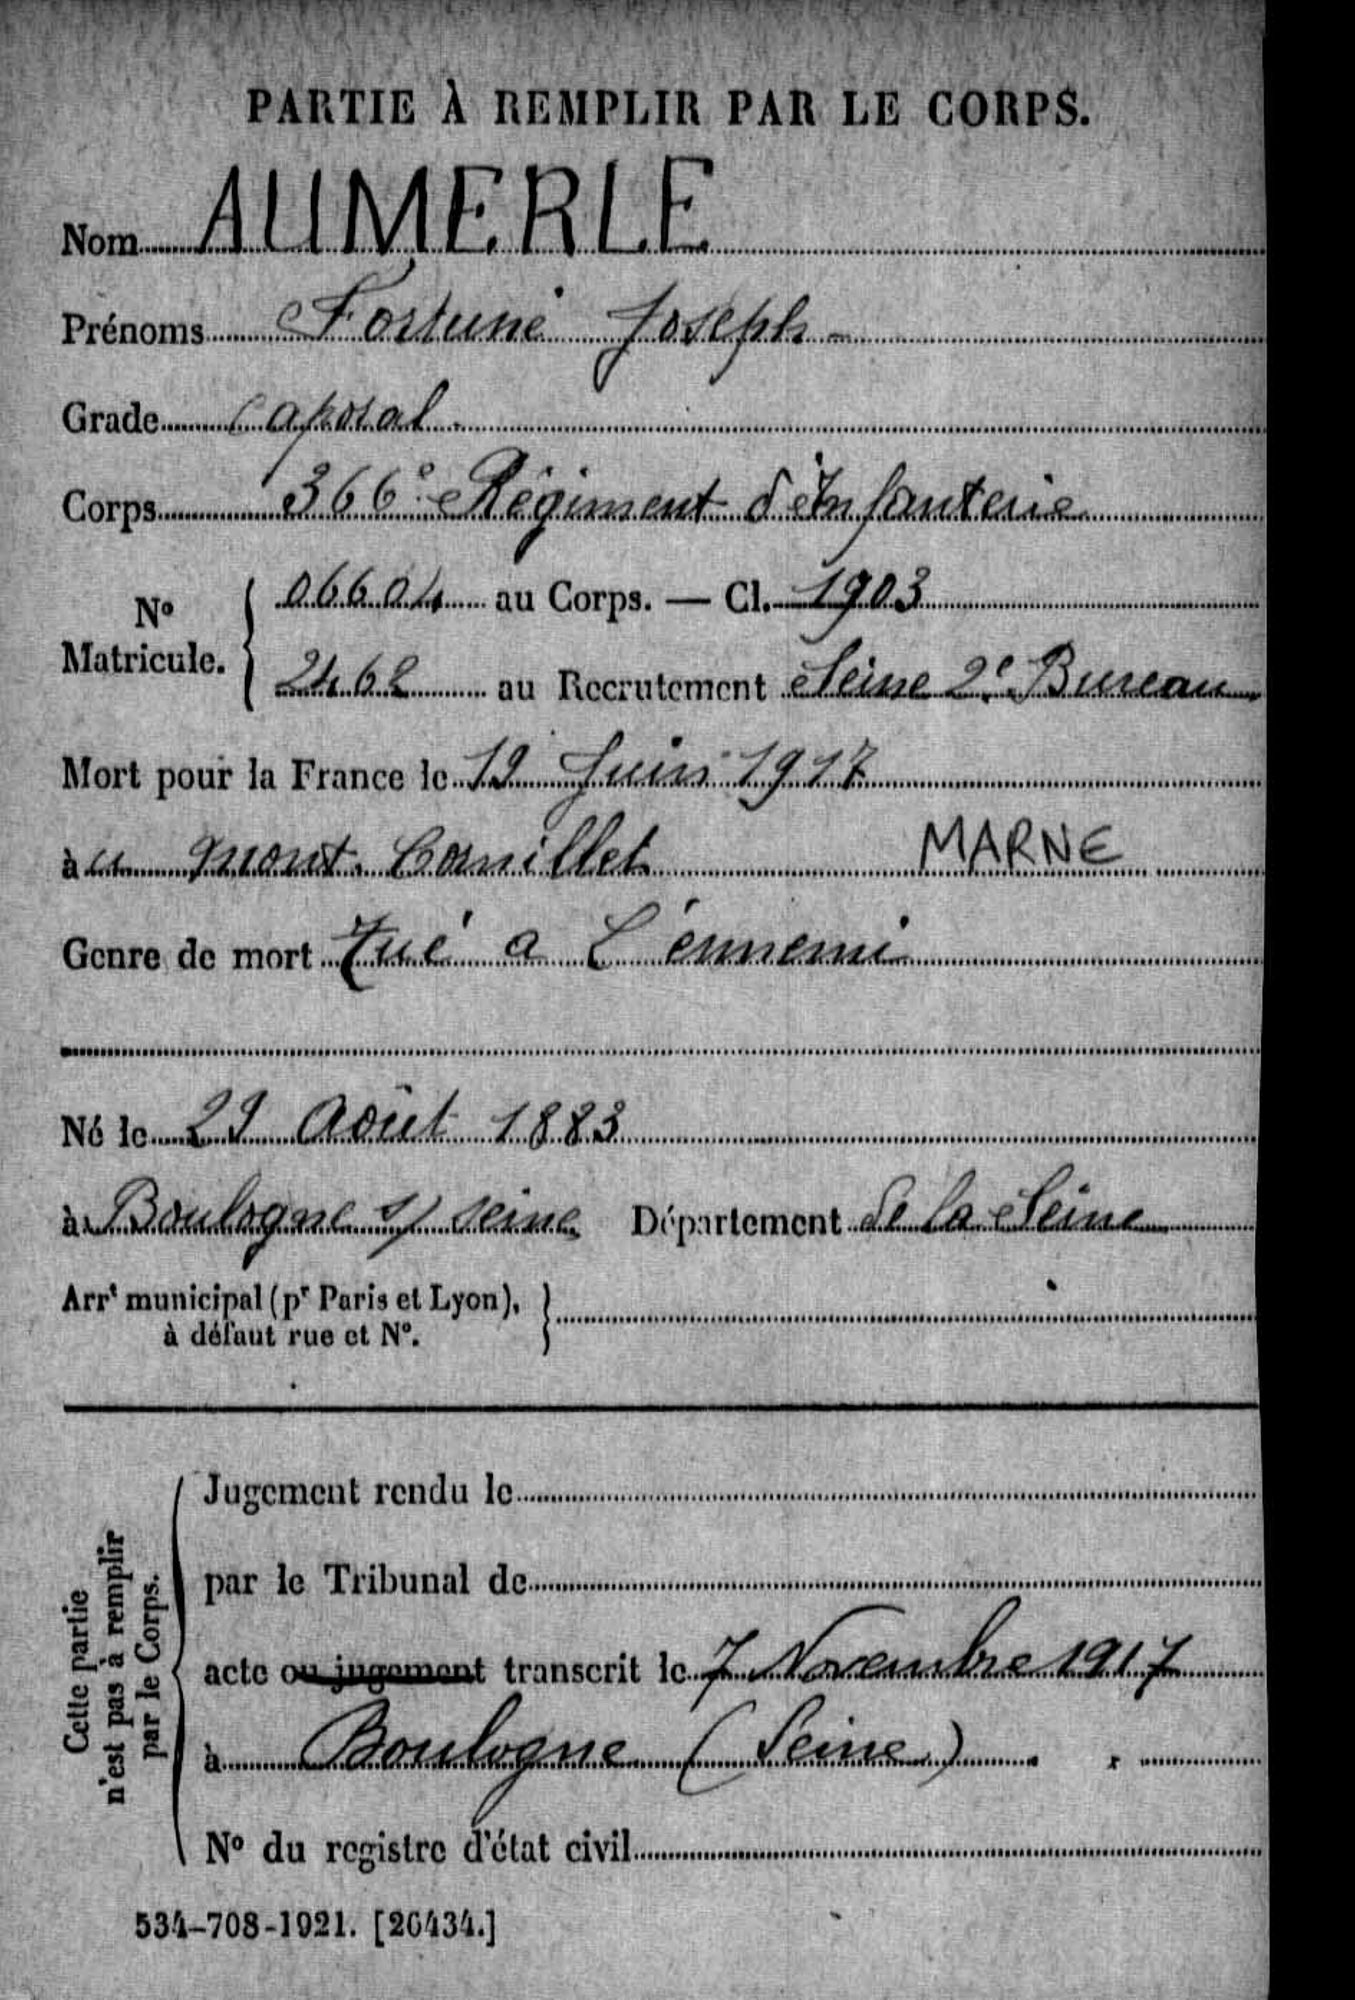 PARTIE À REMPLIR PAR LE CORPS.
Nom AUMERLE
Prénoms Fortuné Joseph -
Grade Caporal.
Corps 366e Régiment d'Infanterie
No Matricule. { 06604 au Corps. — Cl. 1903
2462 au Recrutement Seine 2e Bureau
Mort pour la France le 19 Juin 1917
à u mont Cornillet MARNE
Genre de mort Tué a L'énnemi
Né le 29 Août 1883
à Boulogne s/ seine Département de la Seine
Arrt municipal (pr Paris et Lyon), à défaut rue et No. }
Cette partie n'est pas à remplir par le Corps. {
Jugement rendu le
par le Tribunal de
acte ou jugement transcrit le 7 Novembre 1917
à Boulogne (Seine)
No du registre d'état civil
534-708-1921. [26434.]